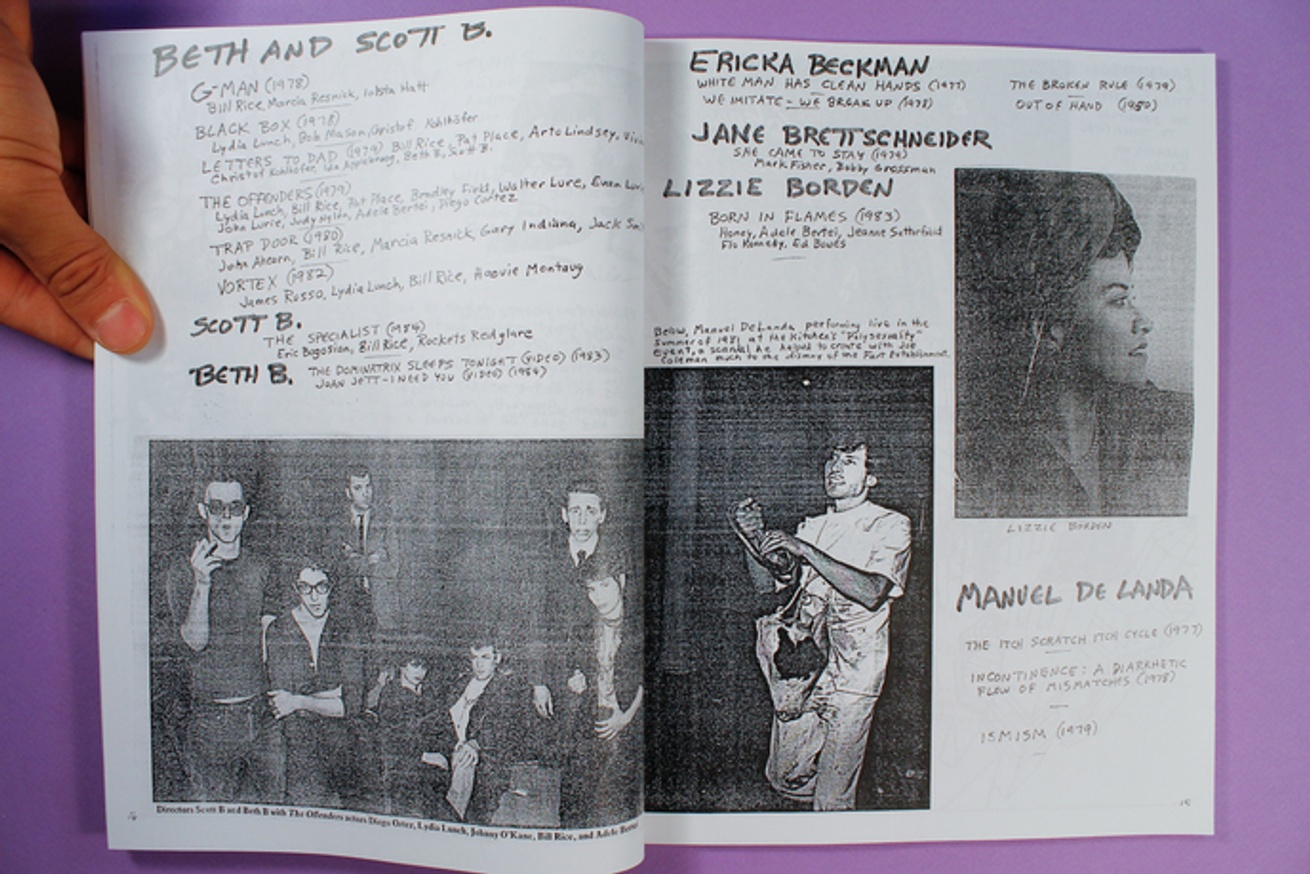 BETH AND SCOTT B.
G-MAN (1978)
Bill Rice, Marcia Resnick,
BLACK BOX (1978)
Lydia Lunch, Bob Mason, Christof Kohlhöfer
LETTERS TO DAD (1979) Bill Rice, Pat Place, Arto Lindsey,
Christof Kohlhöfer, Ida Applebroog, Beth B, Scott B.
THE OFFENDERS (1979)
Lydia Lunch, Bill Rice, Pat Place, Bradley Field, Walter Lure, Evan
John Lurie, Judy Nylon, Adele Bertei, Diego Cortez
TRAP DOOR (1980)
John Ahearn, Bill Rice, Marcia Resnick, Gary Indiana, Jack
VORTEX (1982)
James Russo, Lydia Lunch, Bill Rice, Haovie Montaug
SCOTT B.
THE SPECIALIST (1984)
Eric Bogosian, Bill Rice, Rockets Redglare
BETH B. THE DOMINATRIX SLEEPS TONIGHT (VIDEO) (1983)
JOAN JETT-I NEED YOU (VIDEO) (1984)
Directors Scott B and Beth B with The Offenders actors Diego Cortez, Lydia Lunch, Johnny O'Kane, Bill Rice, and Adele
ERICKA BECKMAN
WHITE MAN HAS CLEAN HANDS (1977)
WE IMITATE - WE BREAK UP (1978)
THE BROKEN RULE (1979)
OUT OF HAND (1980)
JANE BRETTSCHNEIDER
SHE CAME TO STAY (1979)
Mark Fisher, Bobby Grossman
LIZZIE BORDEN
BORN IN FLAMES (1983)
Honey, Adele Bertei, Jeanne Satterfield
Flo Kennedy, Ed Bowes
Below, Manuel DeLanda performing live in the
Summer of 1981 at the Kitchen's "Polysexuality"
event, a scandal he helped to create with Joe
Coleman much to the dismay of the Fart Establishment.
LIZZIE BORDEN
MANUEL DE LANDA
THE ITCH SCRATCH ITCH CYCLE (1977)
INCONTINENCE: A DIARRHETIC
FLOW OF MISMATCHES (1978)
ISMISM (1979)